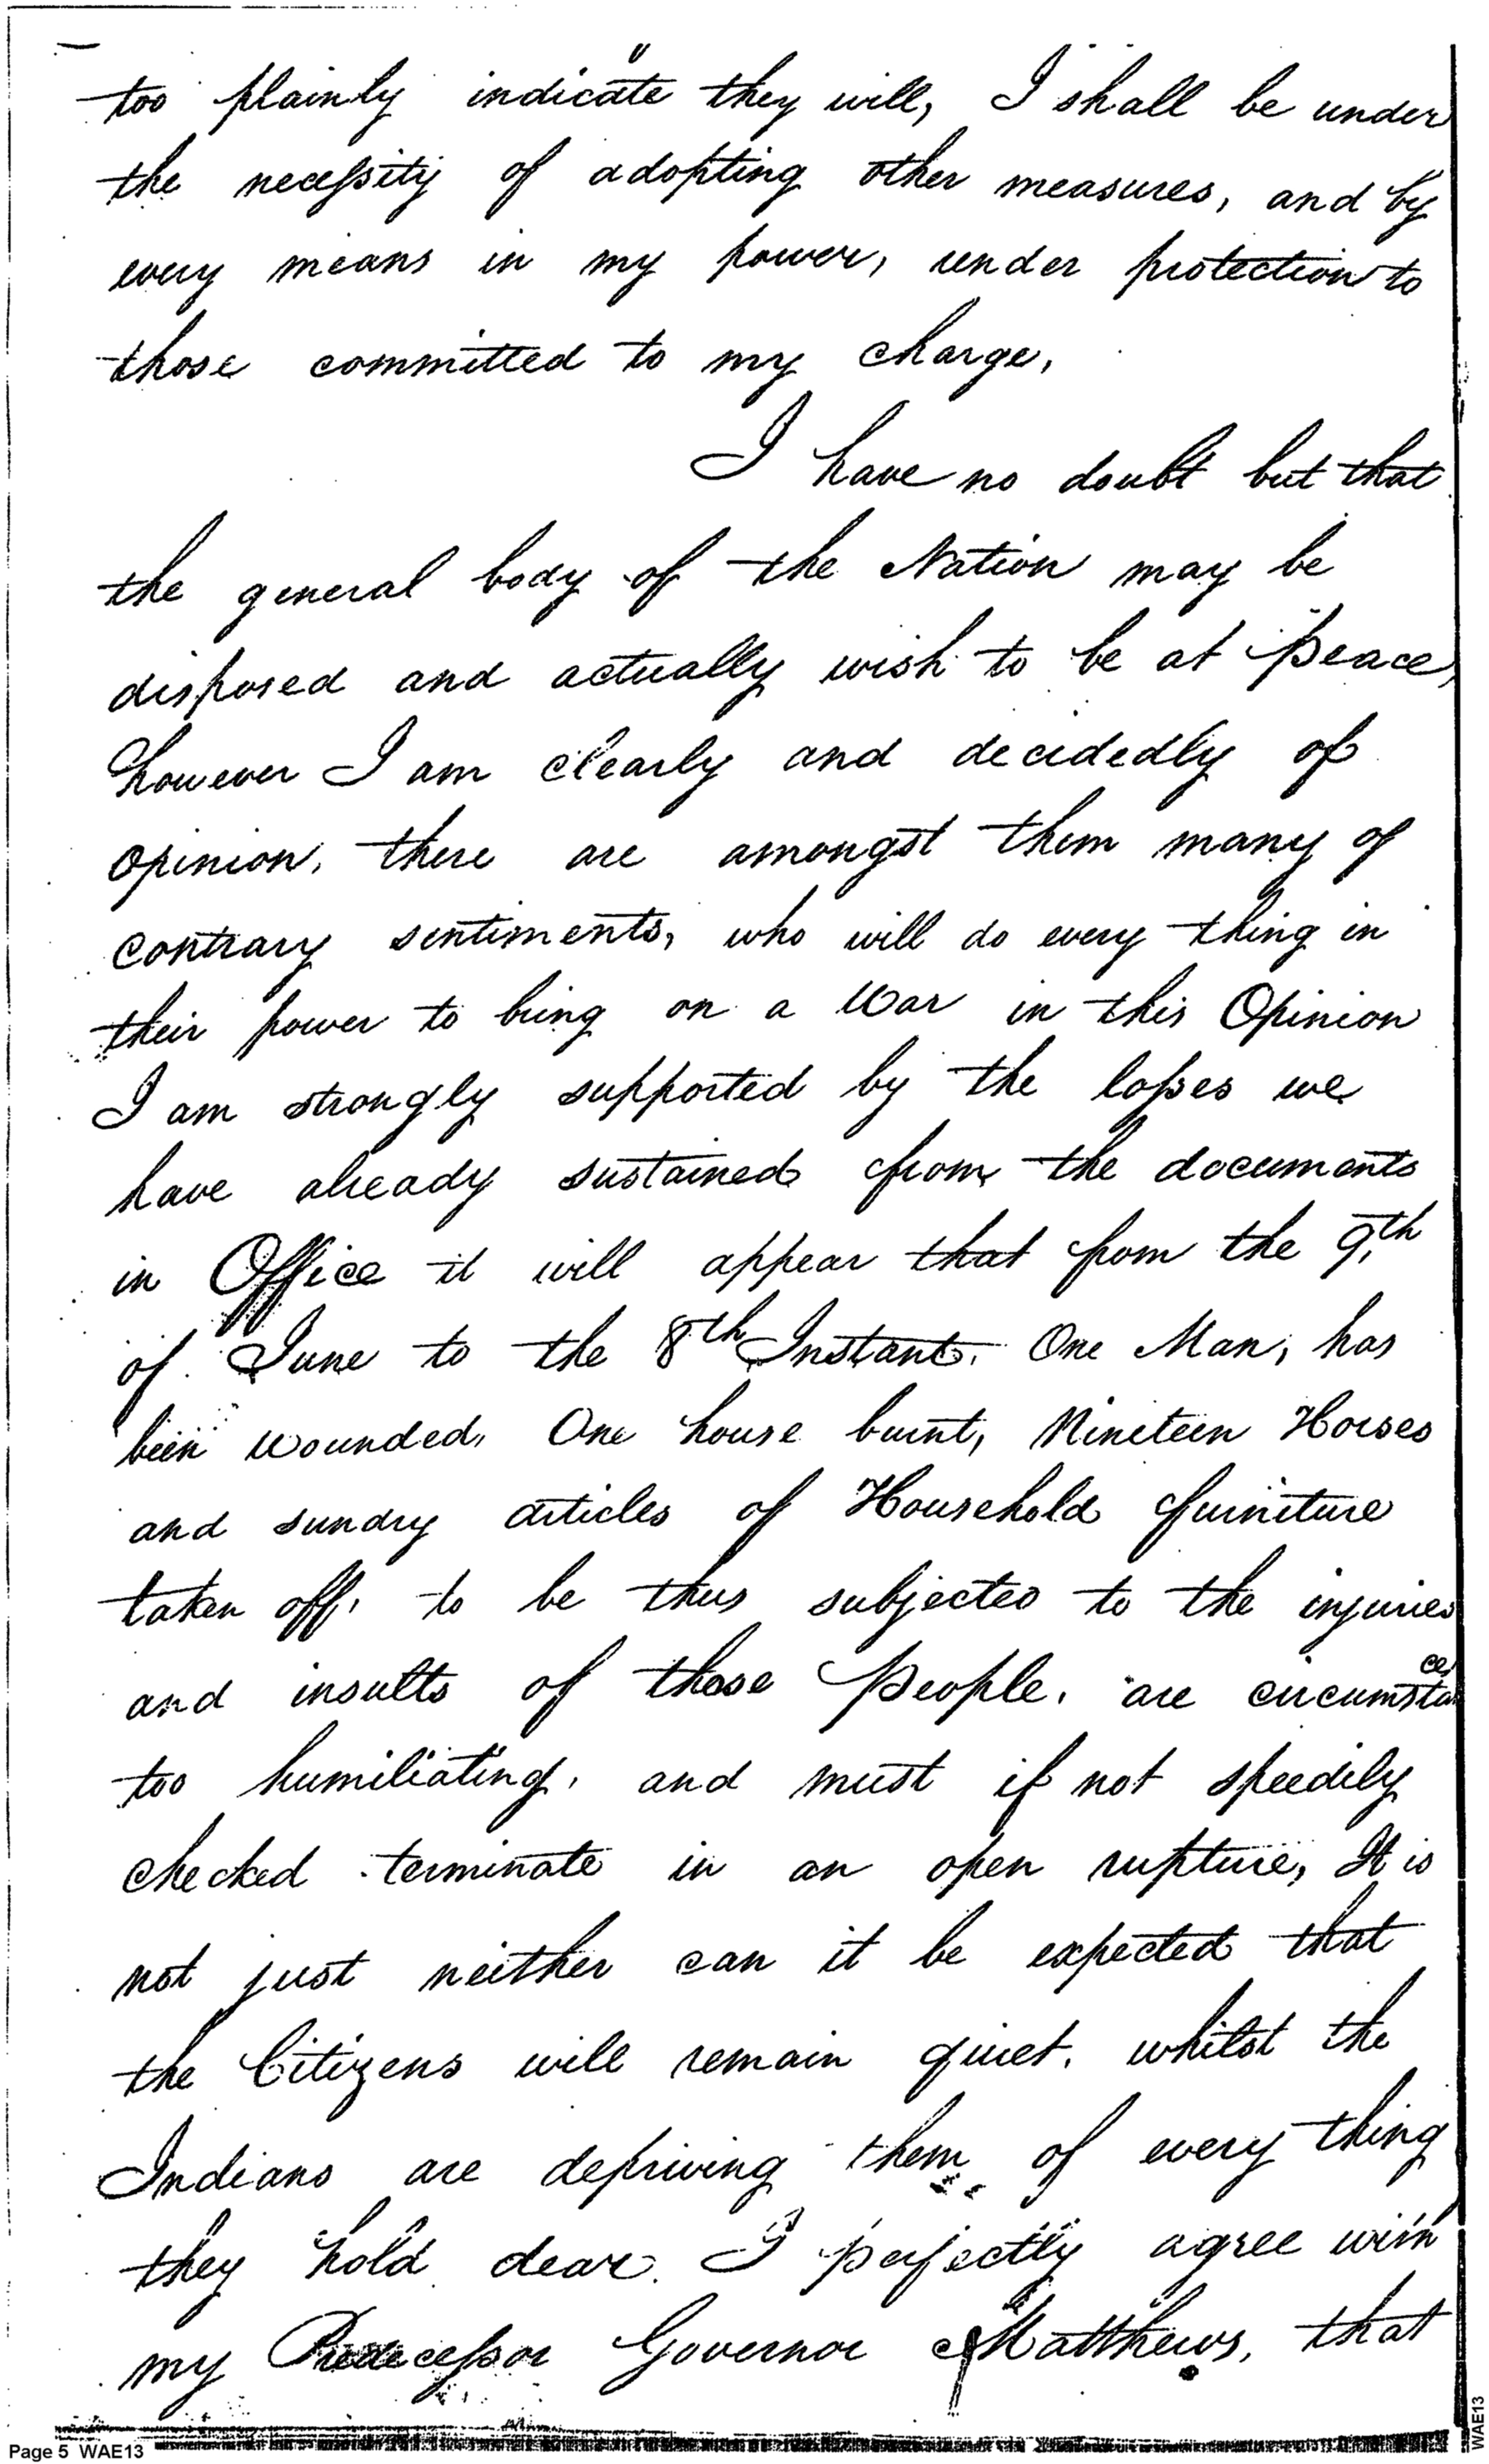 too plainly indicate they will, I shall be under
the necessity of adopting other measures, and by
every means in my power, render protection to
those committed to my charge,
I have no doubt but that
the general body of the Nation may be
disposed and actually wish to be at peace,
however I am clearly and decidedly of
opinion, there are amongst them many of
contrary sentiments, who will do every thing in
their power to bring on a War in this Opinion
I am strongly supported by the losses we
have already sustained from the documents
in Office it will appear that from the 9th
of June to the 8th Instant. One Man, has
been wounded, One house burnt, Nineteen Horses
and sundry articles of Household furniture
taken off, to be thus subjected to the injuries
and insults of those People, are circumstances
too humiliating, and must if not speedily
checked terminate in an open rupture, It is
not just neither can it be expected that
the Citizens will remain quiet, whilst the
Indians are depriving them of every thing
they hold dear. I perfectly agree with
my Predecessor Governor Matthews, that
Page 5 WAE13
WAE13